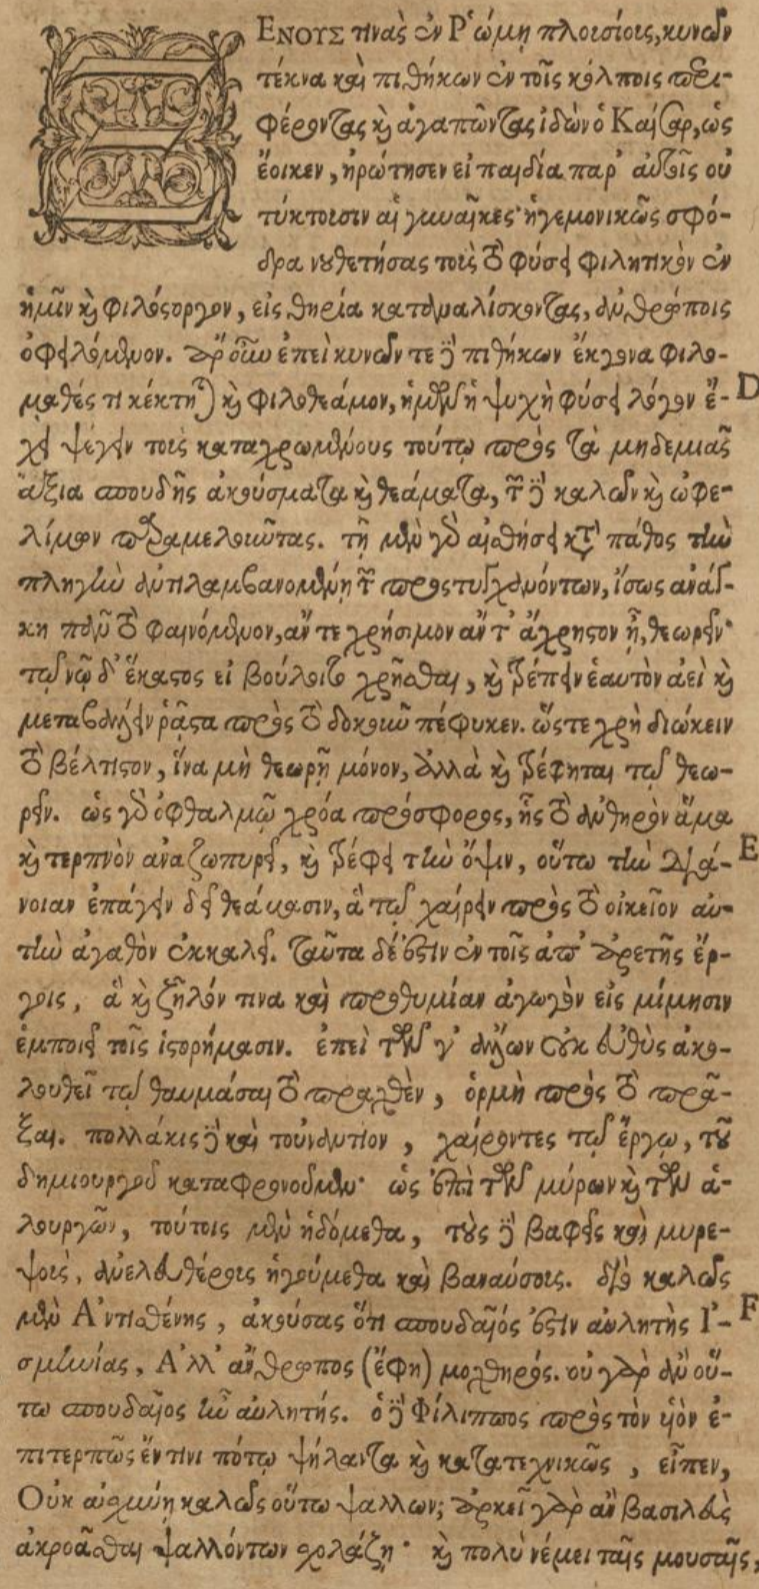 ΞΕΝΟΥΣ τινὰς ἐν Ῥώμῃ πλουσίους, κυνῶν
τέκνα καὶ πιθήκων ἐν τοῖς κόλποις περι-
φέροντας καὶ ἀγαπῶντας ἰδὼν ὁ Καῖσαρ, ὡς
ἔοικεν, ἠρώτησεν εἰ παιδία παρ' αὐτοῖς οὐ
τίκτουσιν αἱ γυναῖκες· ἡγεμονικῶς σφό-
δρα νουθετήσας τοὺς τὸ φύσει φιλητικὸν ἐν
ἡμῖν καὶ φιλόστοργον, εἰς θηρία καταναλίσκοντας, ἀνθρώποις
ὀφειλόμενον. ἆρ' οὖν ἐπεὶ κυνῶν τε καὶ πιθήκων ἔκγονα φιλο-
μαθές τι κέκτηται καὶ φιλοθεάμον, ἡμῶν ἡ ψυχὴ φύσει λόγον ἔ- D
χει ψέγειν τοὺς καταχρωμένους τούτῳ πρὸς τὰ μηδεμιᾶς
ἄξια σπουδῆς ἀκούσματα καὶ θεάματα, τῶν δὲ καλῶν καὶ ὠφε-
λίμων παραμελοῦντας. τῇ μὲν γὰρ αἰσθήσει κατὰ πάθος τὴν
πληγὴν ἀντιλαμβανομένῃ τῶν προστυγχανόντων, ἴσως ἀνάγ-
κη πᾶν τὸ φαινόμενον, ἄν τε χρήσιμον ἄν τ' ἄχρηστον ᾖ, θεωρεῖν·
τῷ νῷ δ' ἕκαστος εἰ βούλοιτο χρῆσθαι, καὶ τρέπειν ἑαυτὸν ἀεὶ καὶ
μεταβάλλειν ῥᾷστα πρὸς τὸ δοκοῦν πέφυκεν. ὥστε χρὴ διώκειν
τὸ βέλτιστον, ἵνα μὴ θεωρῇ μόνον, ἀλλὰ καὶ τρέφηται τῷ θεω-
ρεῖν. ὡς γὰρ ὀφθαλμῷ χρόα πρόσφορος, ἧς τὸ ἀνθηρὸν ἅμα
καὶ τερπνὸν ἀναζωπυρεῖ, καὶ τρέφει τὴν ὄψιν, οὕτω τὴν διά- E
νοιαν ἐπάγειν δεῖ θεάμασιν, ἃ τῷ χαίρειν πρὸς τὸ οἰκεῖον αὐ-
τὴν ἀγαθὸν ἐκκαλεῖ. ταῦτα δέ ἐστιν ἐν τοῖς ἀπ' ἀρετῆς ἔρ-
γοις, ἃ καὶ ζῆλόν τινα καὶ προθυμίαν ἀγωγὸν εἰς μίμησιν
ἐμποιεῖ τοῖς ἱστορήμασιν. ἐπεὶ τῶν γ' ἄλλων οὐκ εὐθὺς ἀκο-
λουθεῖ τῷ θαυμάσαι τὸ πραχθὲν, ὁρμὴ πρὸς τὸ πρᾶ-
ξαι. πολλάκις δὲ καὶ τοὐναντίον, χαίροντες τῷ ἔργῳ, τοῦ
δημιουργοῦ καταφρονοῦμεν· ὡς ἐπὶ τῶν μύρων καὶ τῶν ἁ-
λουργῶν, τούτοις μὲν ἡδόμεθα, τοὺς δὲ βαφεῖς καὶ μυρε-
ψοὺς, ἀνελευθέρους ἡγούμεθα καὶ βαναύσους. διὸ καλῶς
μὲν Ἀντισθένης, ἀκούσας ὅτι σπουδαῖός ἐστιν αὐλητὴς Ἰ- F
σμηνίας, Ἀλλ' ἄνθρωπος (ἔφη) μοχθηρός. οὐ γὰρ ἂν οὕ-
τω σπουδαῖος ἦν αὐλητής. ὁ δὲ Φίλιππος πρὸς τὸν υἱὸν ἐ-
πιτερπῶς ἔν τινι πότῳ ψήλαντα καὶ κατατεχνικῶς, εἶπεν,
Οὐκ αἰσχύνῃ καλῶς οὕτω ψάλλων; ἀρκεῖ γὰρ ἂν βασιλεὺς
ἀκροᾶσθαι ψαλλόντων σχολάζῃ· καὶ πολὺ νέμει ταῖς μούσαις,